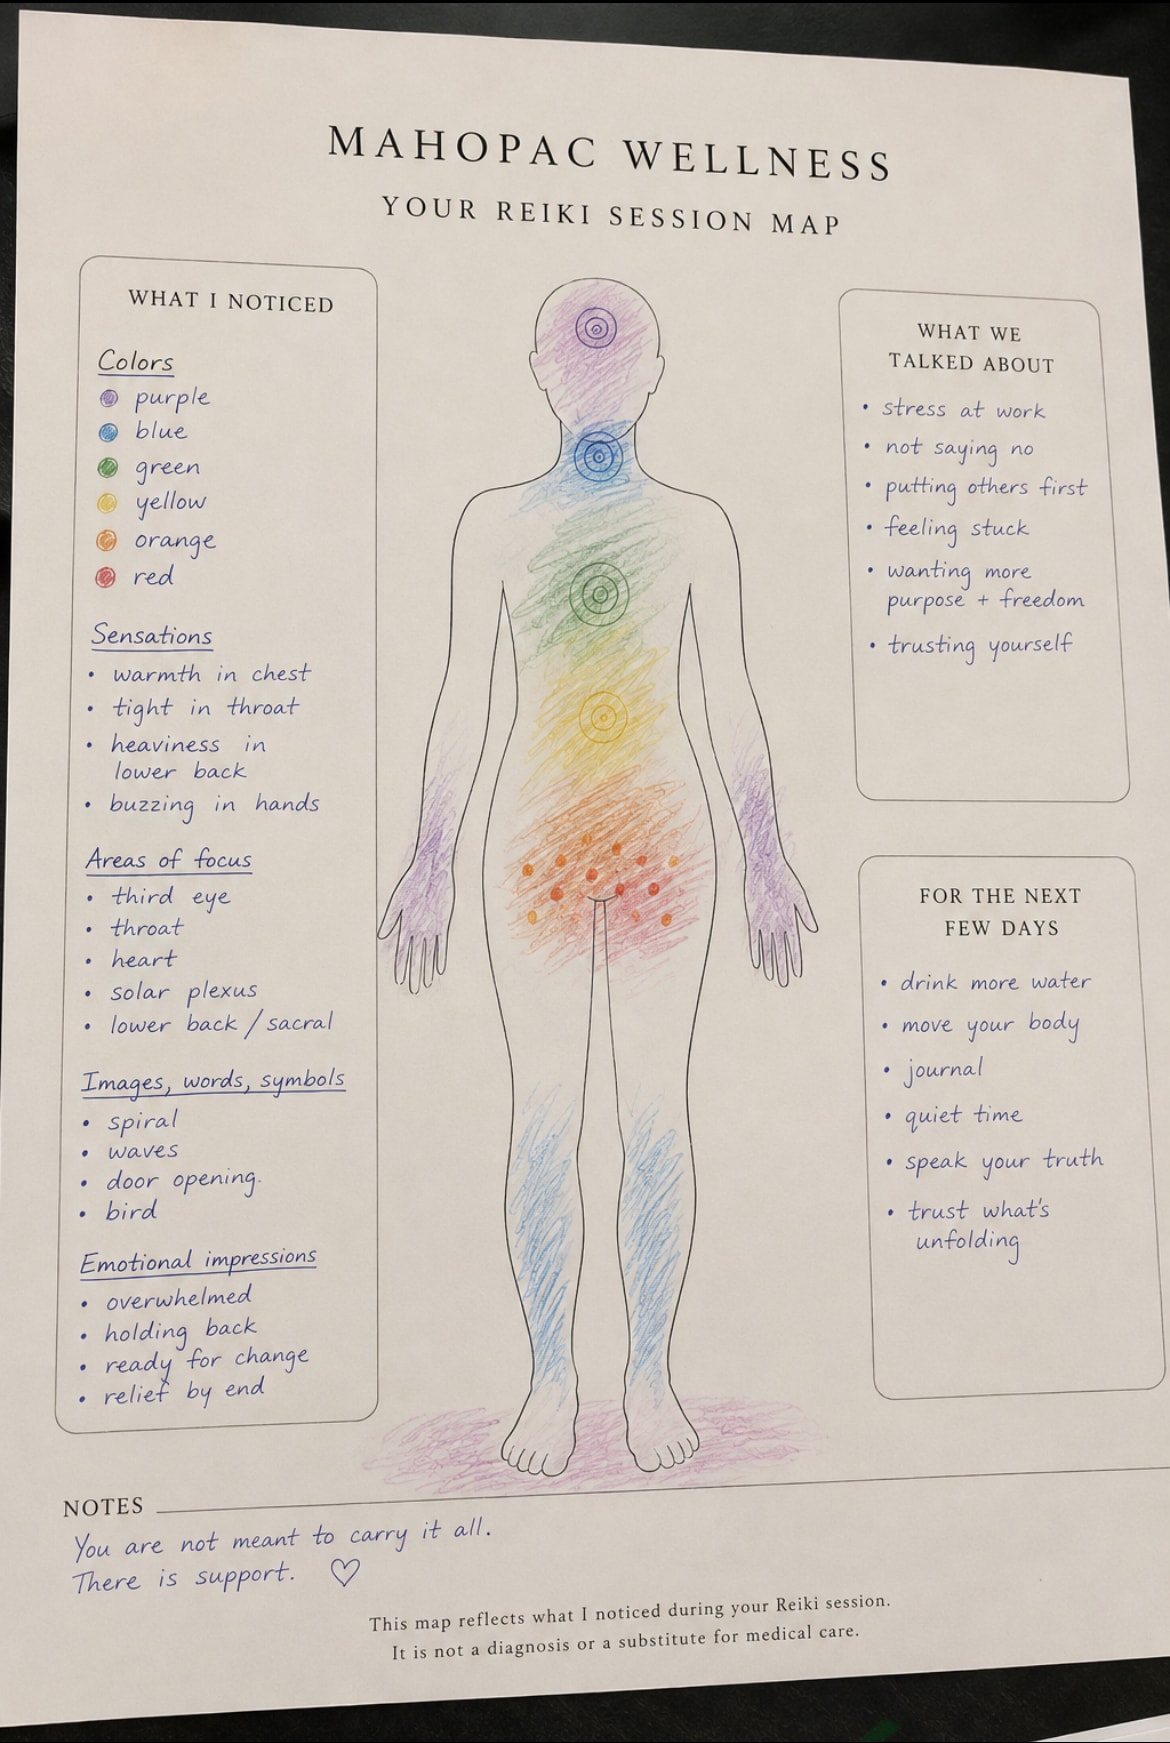 MAHOPAC WELLNESS
YOUR REIKI SESSION MAP
WHAT I NOTICED
Colors
purple
blue
green
yellow
orange
red
Sensations
• warmth in chest
• tight in throat
• heaviness in
lower back
• buzzing in hands
Areas of focus
• third eye
• throat
• heart
• solar plexus
• lower back / sacral
Images, words, symbols
• spiral
• waves
• door opening.
• bird
Emotional impressions
• overwhelmed
• holding back
• ready for change
• relief by end
WHAT WE
TALKED ABOUT
• stress at work
• not saying no
• putting others first
• feeling stuck
• wanting more
purpose + freedom
• trusting yourself
FOR THE NEXT
FEW DAYS
• drink more water
• move your body
• journal
• quiet time
• speak your truth
• trust what's
unfolding
NOTES
You are not meant to carry it all.
There is support. ♡
This map reflects what I noticed during your Reiki session.
It is not a diagnosis or a substitute for medical care.